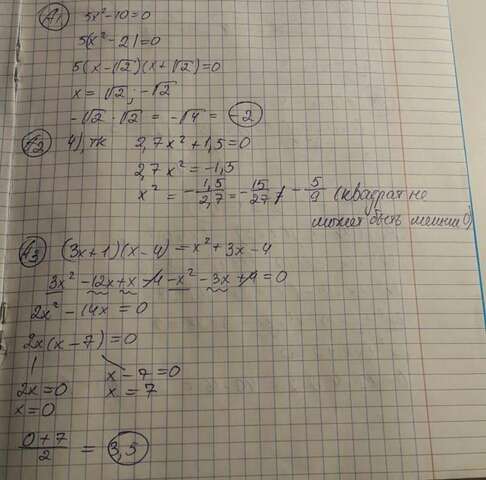 A1 5x² - 10 = 0
5(x² - 2) = 0
5(x - √2)(x + √2) = 0
x = √2; -√2
-√2 · √2 = -√4 = -2
A2 4), тк 2,7x² + 1,5 = 0
2,7x² = -1,5
x² = -1,5/2,7 = -15/27 ≠ -5/9 (квадрат не
может быть меньше 0)
A3 (3x+1)(x-4) = x² + 3x - 4
3x² - 12x + x - 4 - x² - 3x + 4 = 0
2x² - 14x = 0
2x(x - 7) = 0
x - 7 = 0
2x = 0 x = 7
x = 0
0+7/2 = 3,5